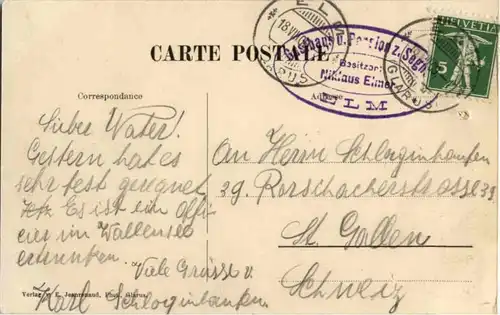 CARTE POSTALE
ELM
18 VII
GLARUS
Gasthaus u. Pension z. Segnes
Besitzer:
Niklaus Elmer
ELM
HELVETIA
5
GLARUS
Correspondance
Adresse
Lieber Vater!
Gestern hat es
sehr fest geregnet
Es ist ein Offi-
zier im Wallensee
ertrunken.
Viele Grüsse v.
Karl Schlaginhaufen.
An Herrn Schlaginhaufen
39. Rorschacherstrasse 39
St. Gallen
Schweiz
Verlag v. E. Jeanrenaud, Phot. Glarus.